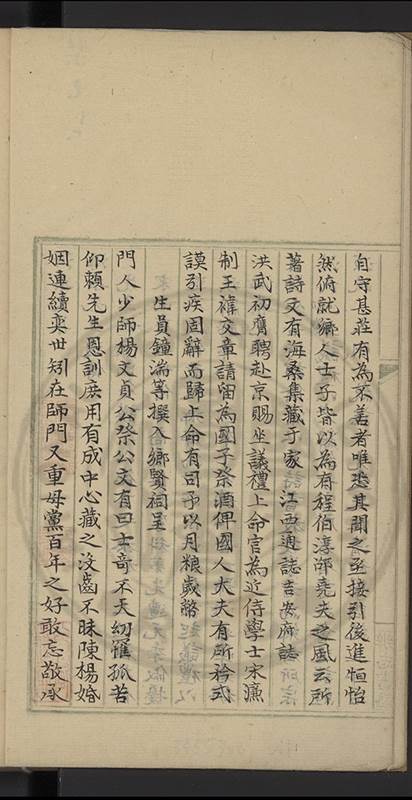 自守甚莊有為不善者唯恐其聞之至接引後進恒怡
然俯就鄉人士子皆以為有程伯淳邵堯夫之風云所
著詩文有海桑集藏于家江西通誌吉安府誌
洪武初膺聘赴京賜坐議禮上命官為近侍學士宋濂
制王禕交章請留為國子祭酒俾國人大夫有所矜式
謨引疾固辭而歸上命有司予以月粮歲幣
生員鐘湍等撰入鄉賢祠呈
門人少師楊文貞公祭公文有曰士奇不天幼罹孤苦
仰賴先生恩訓庶用有成中心藏之沒齒不昧陳楊婚
姻連續奕世矧在師門又重母黨百年之好敢忘敬承